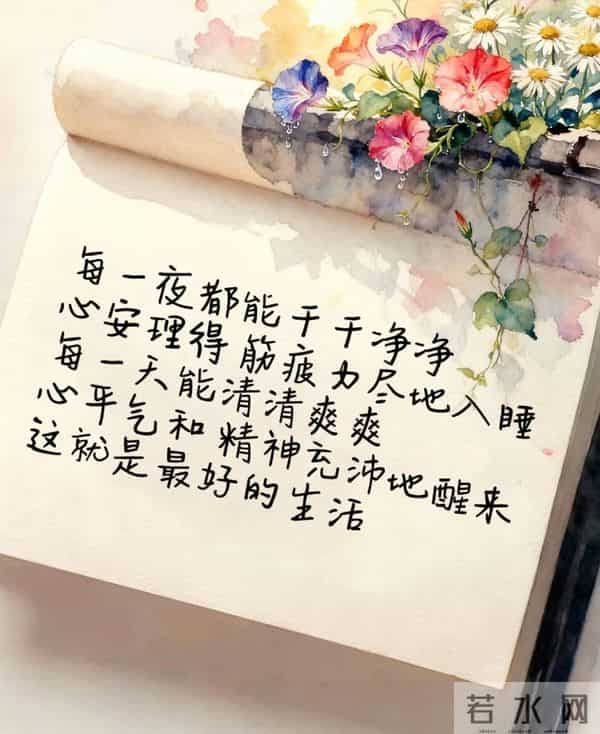 每一夜都能干干净净
心安理得筋疲力尽地入睡
每一天能清清爽爽
心平气和精神充沛地醒来
这就是最好的生活
若水网